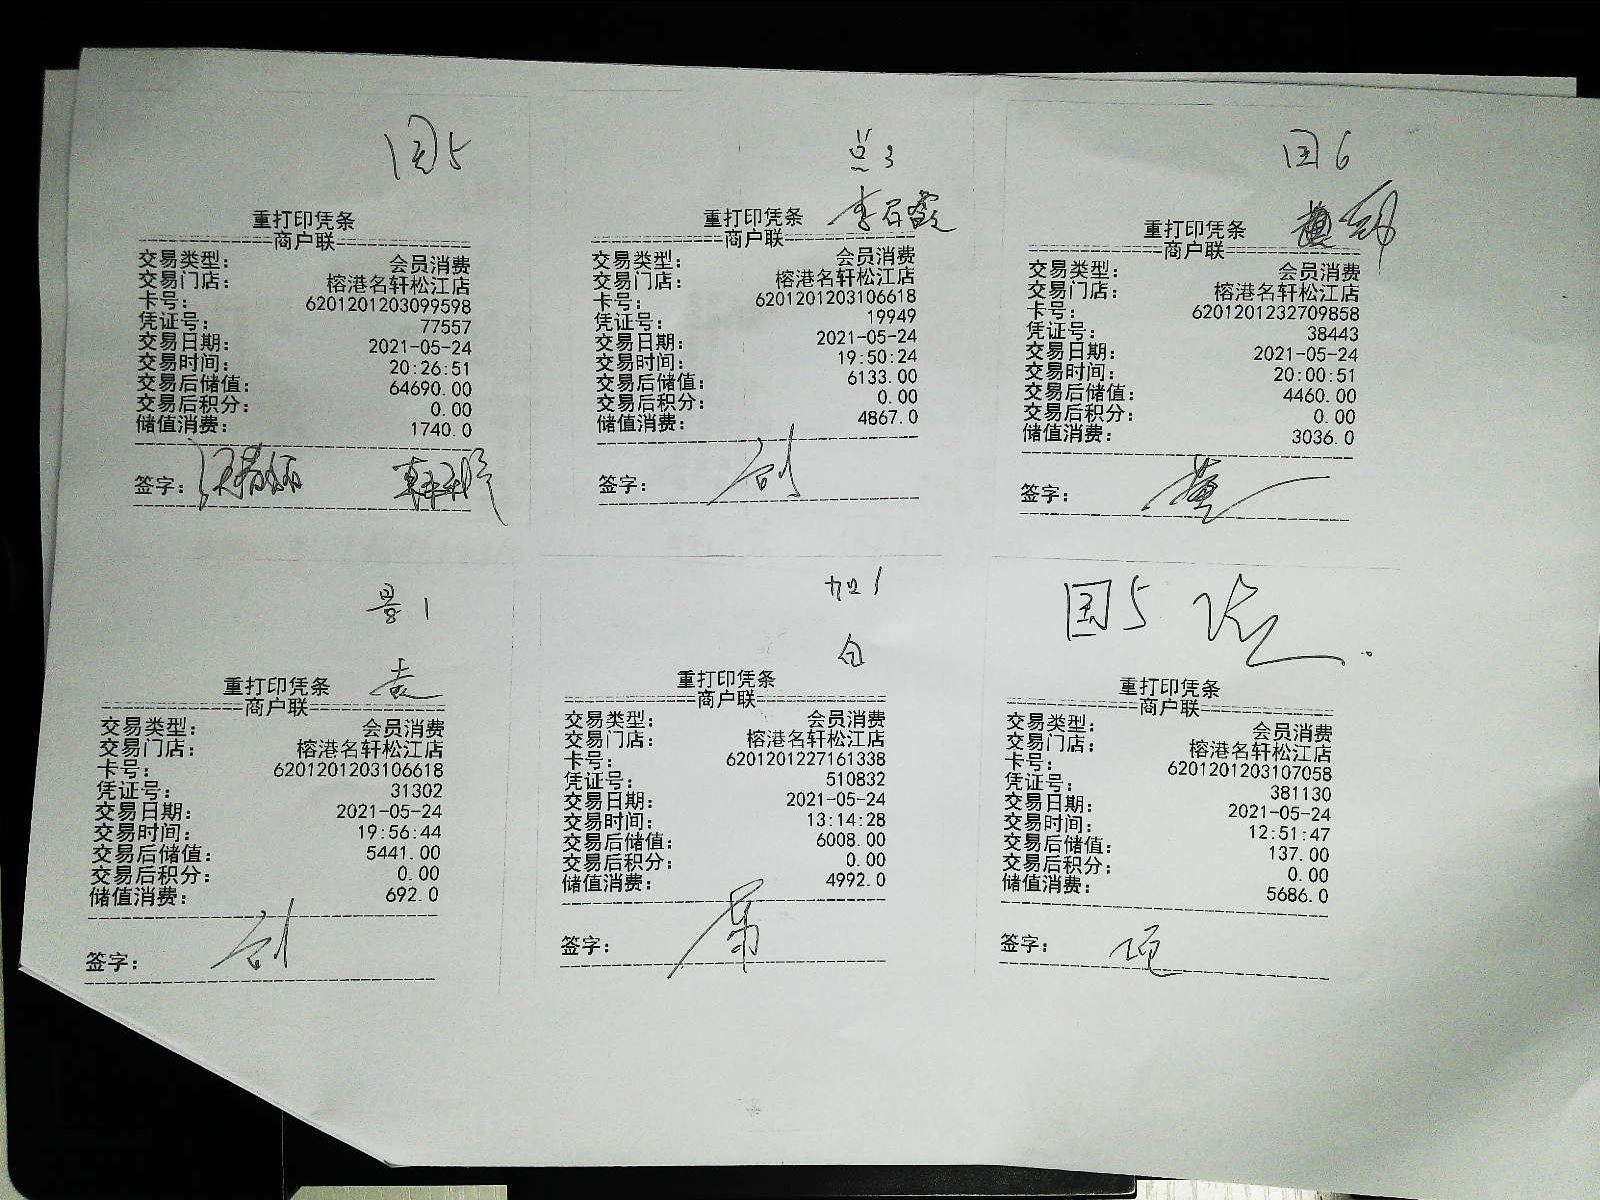 国5
重打印凭条
商户联
交易类型: 会员消费
交易门店: 榕港名轩松江店
卡号: 6201201203099598
凭证号: 77557
交易日期: 2021-05-24
交易时间: 20:26:51
交易后储值: 64690.00
交易后积分: 0.00
储值消费: 1740.0
签字:
3
重打印凭条
商户联
交易类型: 会员消费
交易门店: 榕港名轩松江店
卡号: 6201201203106618
凭证号: 19949
交易日期: 2021-05-24
交易时间: 19:50:24
交易后储值: 6133.00
交易后积分: 0.00
储值消费: 4867.0
签字:
国6
重打印凭条
商户联
交易类型: 会员消费
交易门店: 榕港名轩松江店
卡号: 6201201232709858
凭证号: 38443
交易日期: 2021-05-24
交易时间: 20:00:51
交易后储值: 4460.00
交易后积分: 0.00
储值消费: 3036.0
签字: 董
1
袁
重打印凭条
商户联
交易类型: 会员消费
交易门店: 榕港名轩松江店
卡号: 6201201203106618
凭证号: 31302
交易日期: 2021-05-24
交易时间: 19:56:44
交易后储值: 5441.00
交易后积分: 0.00
储值消费: 692.0
签字:
加1
白
重打印凭条
商户联
交易类型: 会员消费
交易门店: 榕港名轩松江店
卡号: 6201201227161338
凭证号: 510832
交易日期: 2021-05-24
交易时间: 13:14:28
交易后储值: 6008.00
交易后积分: 0.00
储值消费: 4992.0
签字:
国5
重打印凭条
商户联
交易类型: 会员消费
交易门店: 榕港名轩松江店
卡号: 6201201203107058
凭证号: 381130
交易日期: 2021-05-24
交易时间: 12:51:47
交易后储值: 137.00
交易后积分: 0.00
储值消费: 5686.0
签字: